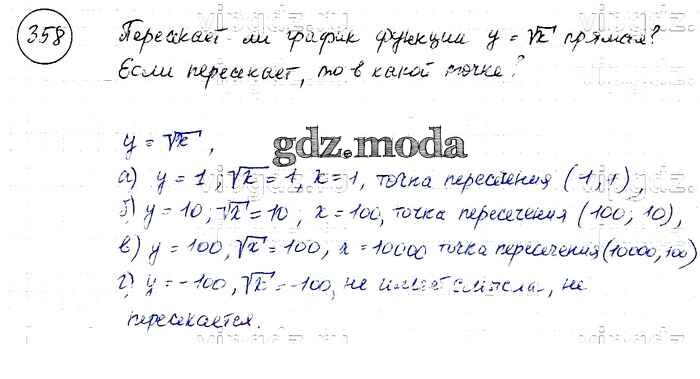 358
Пересекает ли график функции y = √x прямая?
Если пересекает, то в какой точке?
y = √x,
gdz.moda
а) y = 1, √x = 1, x = 1, точка пересечения (1, 1),
б) y = 10, √x = 10, x = 100, точка пересечения (100, 10),
в) y = 100, √x = 100, x = 10000 точка пересечения (10000, 100)
г) y = -100, √x = -100, не имеет смысла, не
пересекается.